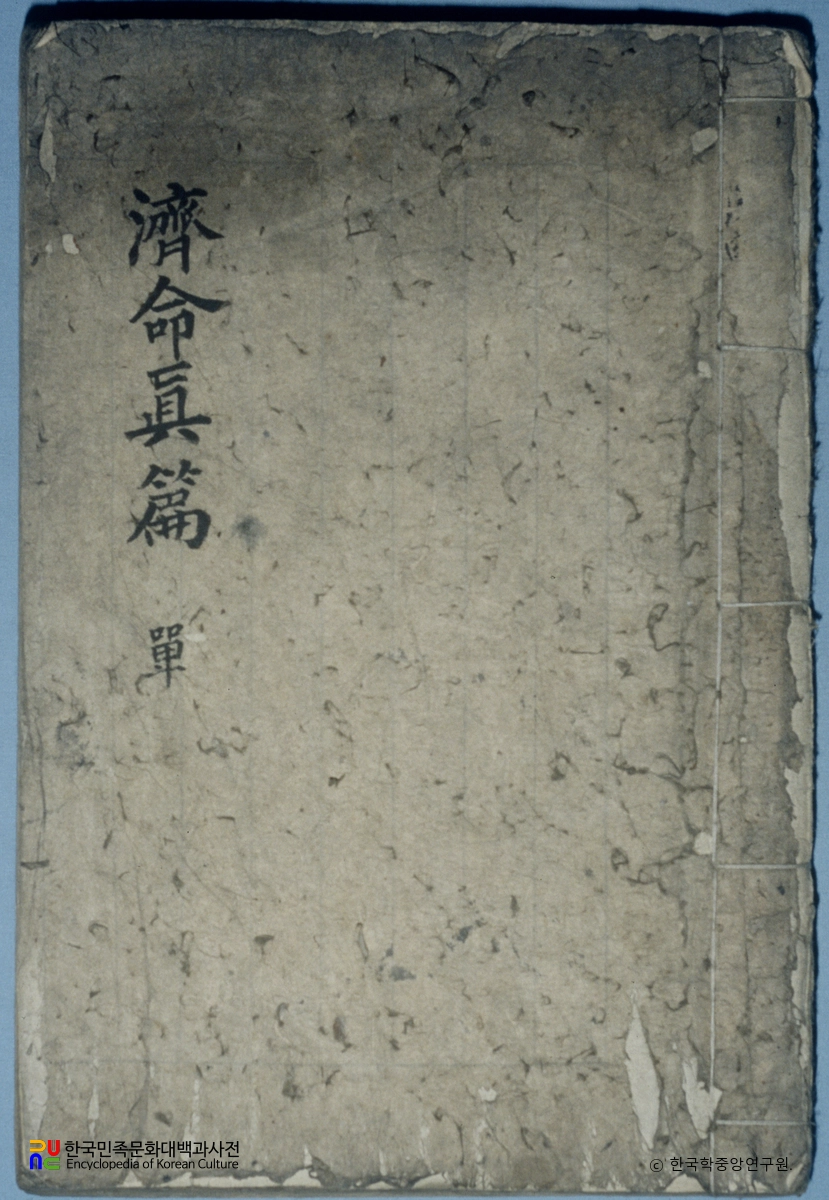 濟命眞篇 單
한국민족문화대백과사전
Encyclopedia of Korean Culture
© 한국학중앙연구원